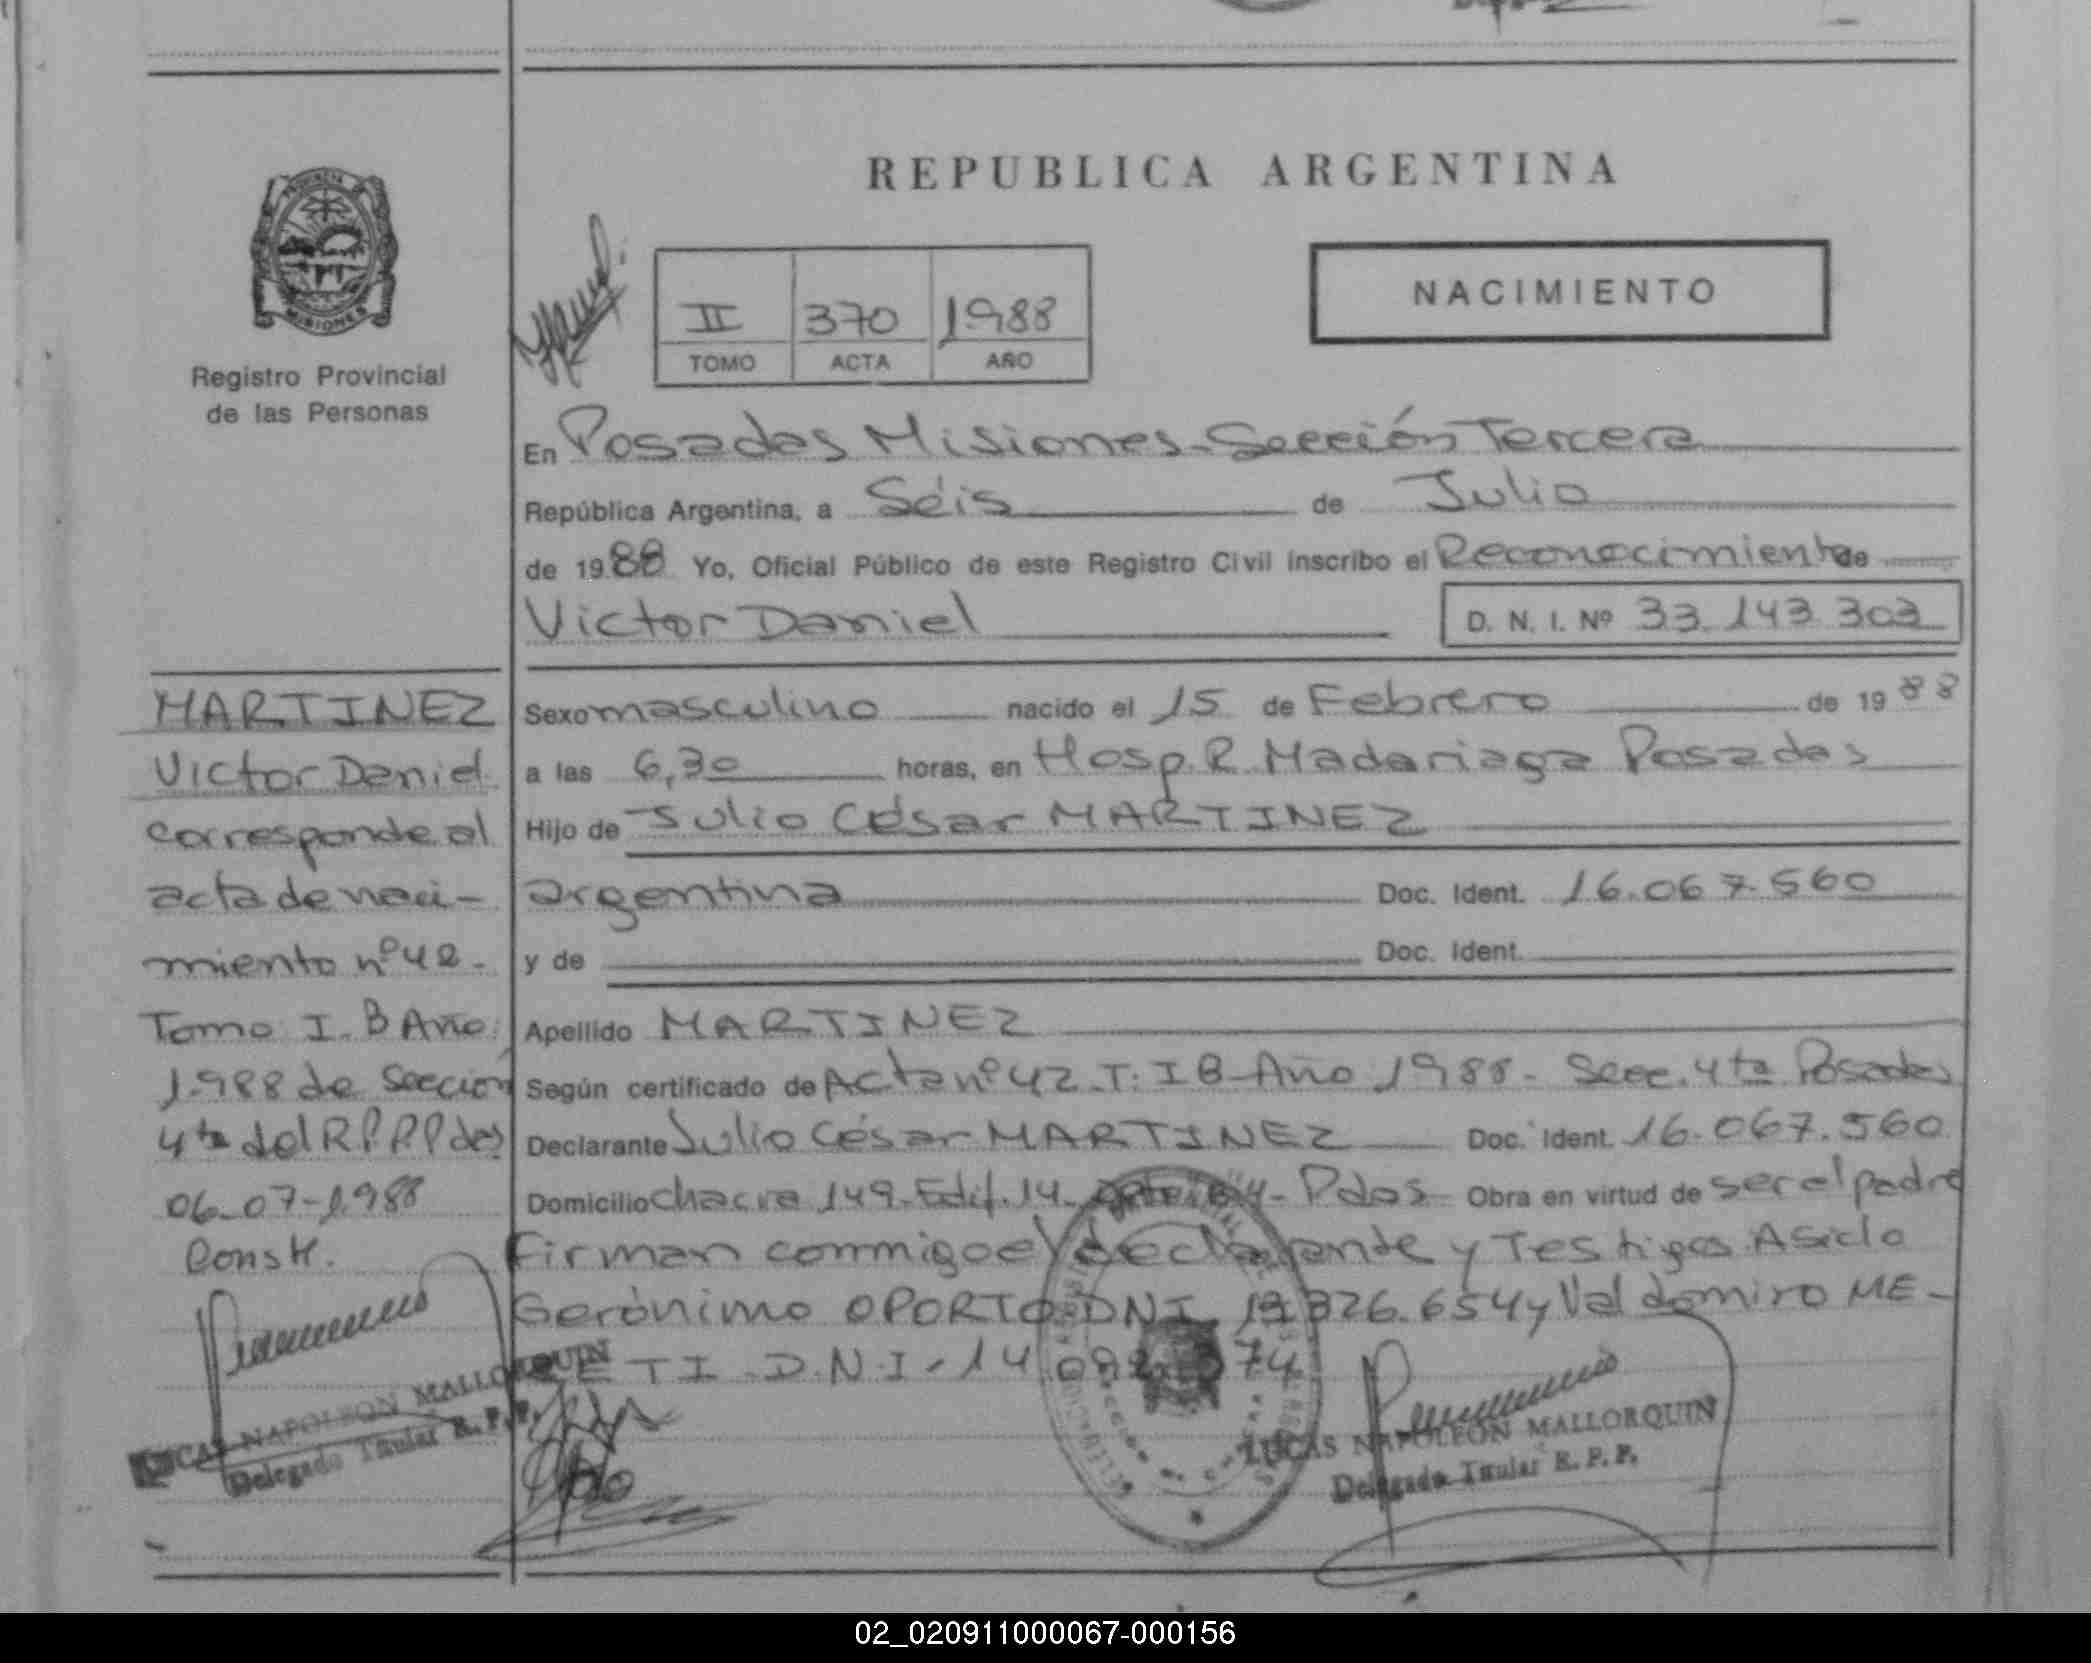 REPUBLICA ARGENTINA
PROVINCIA DE
MISIONES
Registro Provincial
de las Personas
II 370 1988
TOMO ACTA AÑO
NACIMIENTO
En Posadas Misiones-Sección Tercera
República Argentina, a Séis de Julio
de 1988 Yo, Oficial Público de este Registro Civil inscribo el Reconocimiento de
Victor Daniel D. N. I. Nº 33.143.303
Sexo masculino nacido el 15 de Febrero de 1988
a las 6,30 horas, en Hosp. R. Madariaga Posadas
Hijo de Julio César MARTINEZ
argentina Doc. Ident. 16.067.560
y de Doc. Ident.
Apellido MARTINEZ
Según certificado de Acta nº 42 T: I B-Año 1988- Secc. 4ta Posadas
Declarante Julio César MARTINEZ Doc. Ident. 16.067.560
Domicilio chacra 149-Edif. 14- Pdas Obra en virtud de ser el padre
Firman conmigo el declarante y Testigos Asiclo
Gerónimo OPORTO DNI 326.654 y Valdomiro ME-
TI D.N.I. 14
LUCAS NAPOLEON MALLORQUIN
Delegado Titular R. P. P.
MARTINEZ
Victor Daniel
corresponde al
acta de naci-
miento nº 42-
Tomo I. B Año:
1.988 de Sección
4ta del R.P.P Pdas
06-07-1.988
Const.
LUCAS NAPOLEON MALLORQUIN
Delegado Titular R. P. P.
02_020911000067-000156